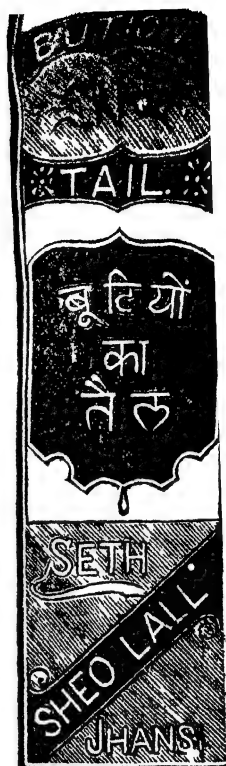 BUTION
TAIL.
बूटियों
का
तैल
SETH
SHEO LALL
JHANSI